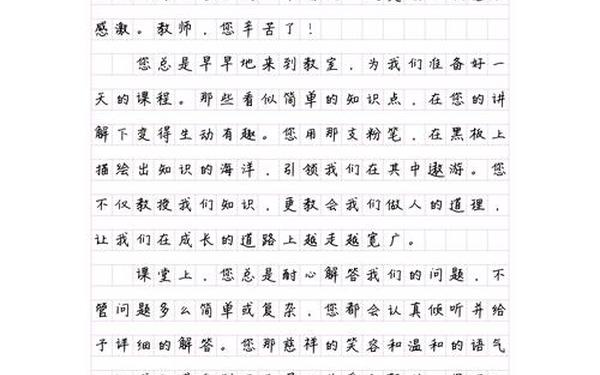 感激。教师，您辛苦了！
您总是早早地来到教室，为我们准备好一
天的课程。那些看似简单的知识点，在您的讲
解下变得生动有趣。您用那支粉笔，在黑板上
描绘出知识的海洋，引领我们在其中遨游。您
不仅教授我们知识，更教会我们做人的道理，
让我们在成长的道路上越走越宽广。
课堂上，您总是耐心解答我们的问题，不
管问题多么简单或复杂，您都会认真倾听并给
予详细的解答。您那慈祥的笑容和温和的语气